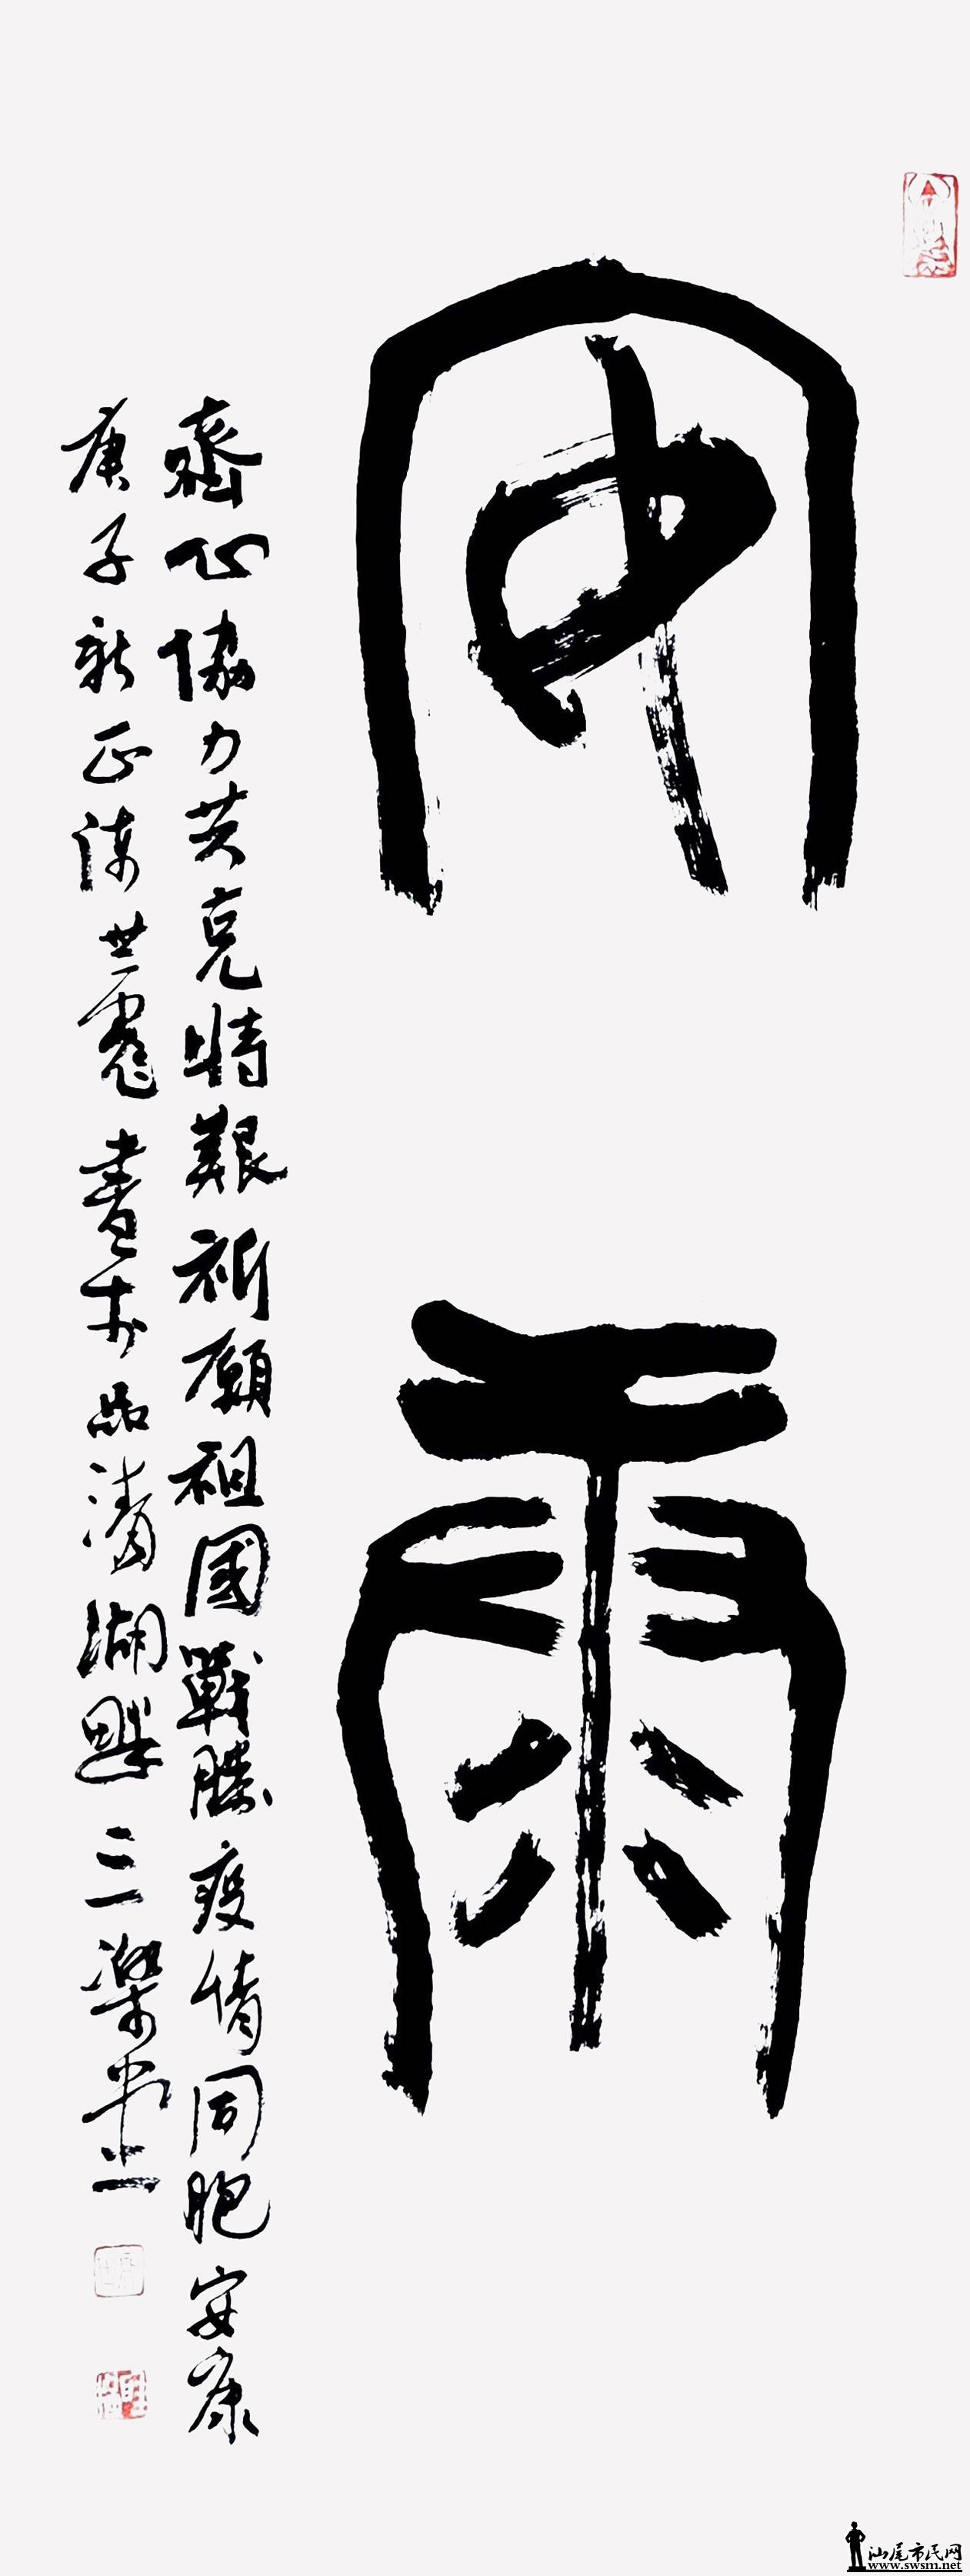 安康
齊心協力共克時艱祈願祖國戰勝疫情同胞安康
庚子新正陳世彪書於品清湖畔三樂堂
汕尾市民网
www.swsm.net